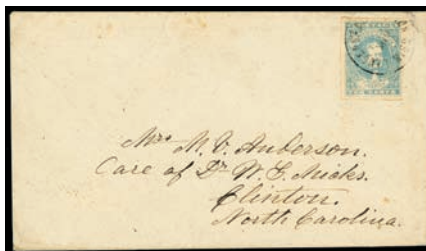 Mrs M. V. Anderson.
Care of Dr W. C. Hicks.
Clinton.
North Carolina.
TEN CENTS